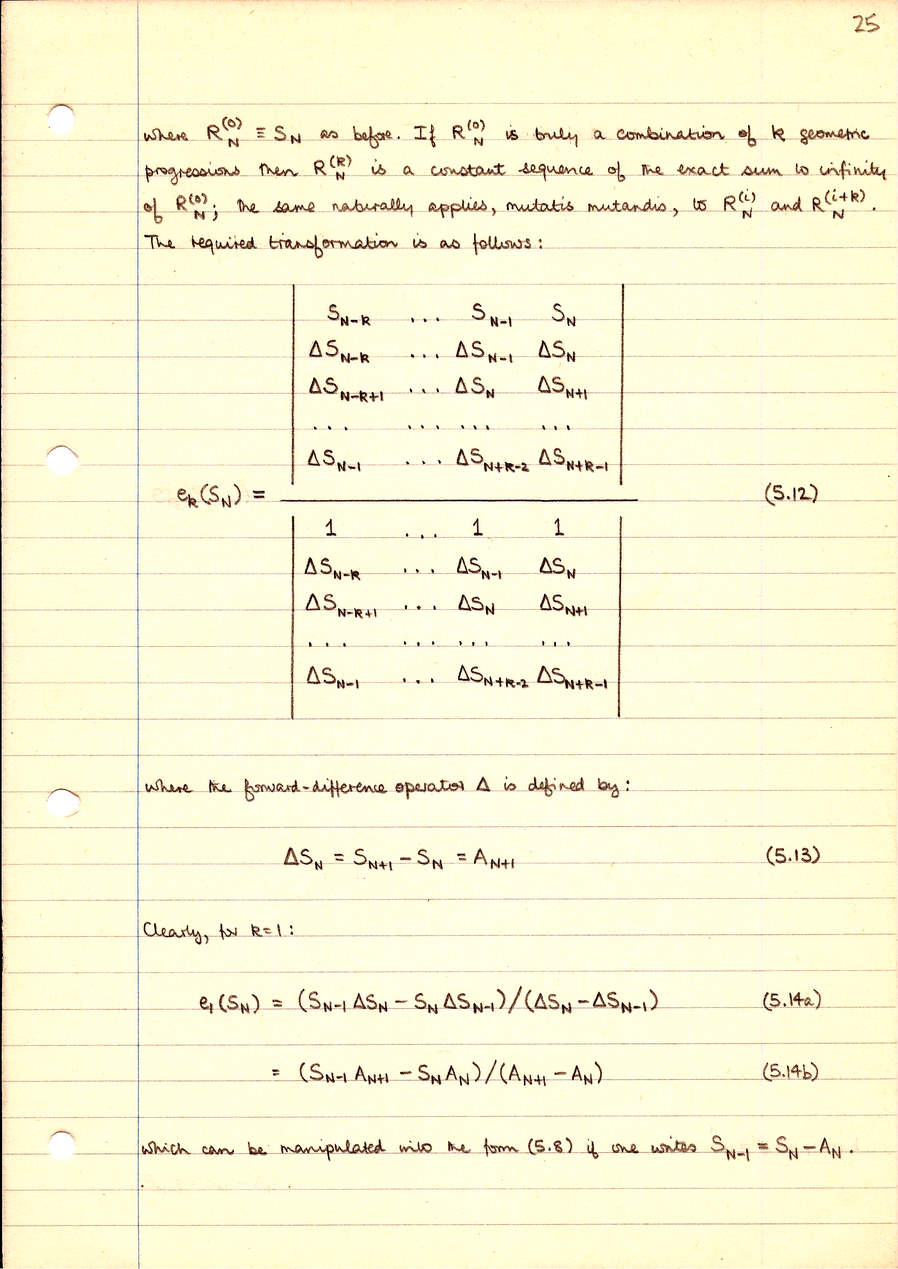 25
where R_N^(0) ≡ S_N as before. If R_N^(0) is truly a combination of k geometric
progressions then R_N^(k) is a constant sequence of the exact sum to infinity
of R_N^(0); the same naturally applies, mutatis mutandis, to R_N^(i) and R_N^(i+k).
The required transformation is as follows:
S_N-k ... S_N-1 S_N
ΔS_N-k ... ΔS_N-1 ΔS_N
ΔS_N-k+1 ... ΔS_N ΔS_N+1
... ... ... ...
ΔS_N-1 ... ΔS_N+k-2 ΔS_N+k-1
e_k(S_N) = (5.12)
1 ... 1 1
ΔS_N-k ... ΔS_N-1 ΔS_N
ΔS_N-k+1 ... ΔS_N ΔS_N+1
... ... ... ...
ΔS_N-1 ... ΔS_N+k-2 ΔS_N+k-1
where the forward-difference operator Δ is defined by:
ΔS_N = S_N+1 - S_N = A_N+1 (5.13)
Clearly, for k=1:
e_1(S_N) = (S_N-1 ΔS_N - S_N ΔS_N-1)/(ΔS_N - ΔS_N-1) (5.14a)
= (S_N-1 A_N+1 - S_N A_N)/(A_N+1 - A_N) (5.14b)
which can be manipulated into the form (5.8) if one writes S_N-1 = S_N - A_N.